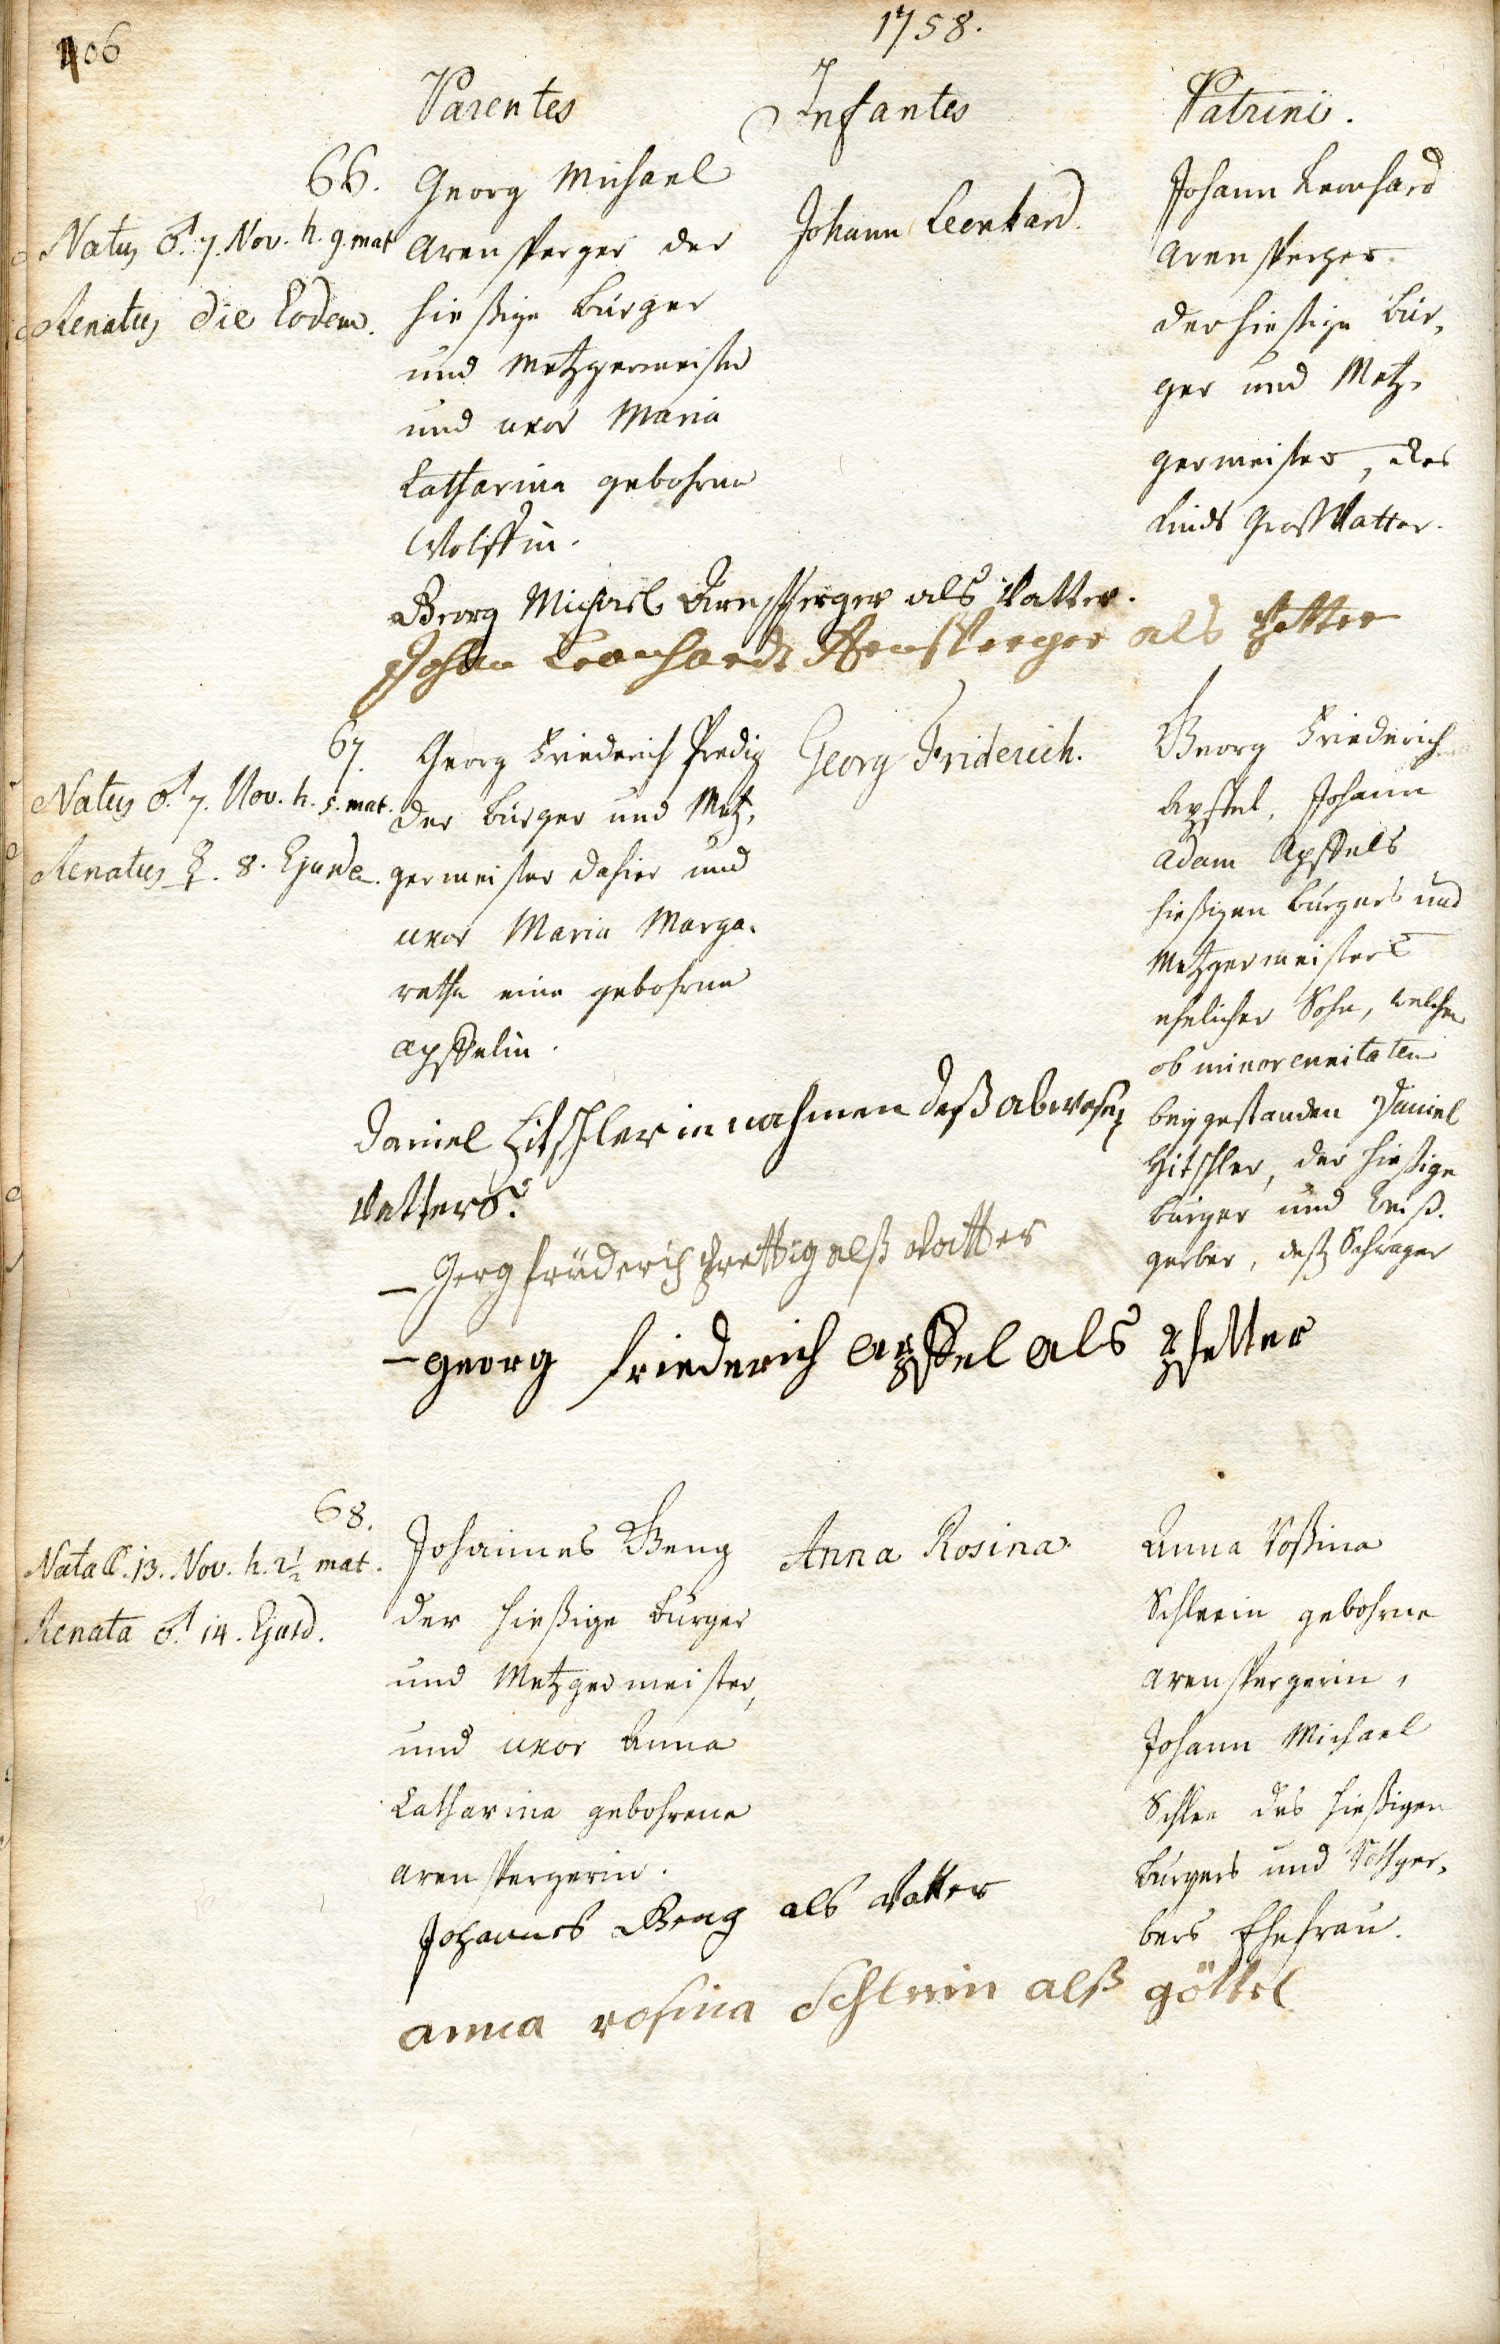 406
1758.
Parentes
Infantes
Patrini.
66.
Natus ♂. 7. Nov. h. 9. mat
Renatus die Eodem.
Georg Michael
Arensperger der
hießige Bürger
und Metzgermeister
und uxor Maria
Catharina gebohrne
Wolffin.
Johann Leonhard.
Johann Leonhard
Arensperger
der hießige Bür,
ger und Metz,
germeister, des
Kinds GroßVatter.
Georg Michael Arnsperger als Vatter.
Johan Leonhardt Arnsperger als Petter
67.
Natus ♂. 7. Nov. h. 5. mat.
Renatus ☿. 8. Ejusde.
Georg Friederich Predig
der Bürger und Metz,
germeister dahier und
uxor Maria Marga,
retha eine gebohrne
Apffelin.
Georg Friderich.
Georg Friederich
Apffel, Johann
Adam Apffels
hießigen Bürgers und
Metzgermeisters
ehelicher Sohn, welchem
ob minorennitatem
beygestanden Daniel
Hitschler, der hießige
Bürger und Weiß.
gerber, deß Schwager
Daniel Hitschler in nahmen deß abweßen
Vatters.
– Gerg früderich Prettig alß Vatter
– georg friederich apffel als Pfetter
68.
Nata ☾. 13. Nov. h. 2½ mat.
Renata ♂. 14. Ejusd.
Johannes Beng
der hießige Bürger
und Metzgermeister,
und uxor Anna
Catharina gebohrene
Arenspergerin.
Anna Rosina.
Anna Roßina
Schleein gebohrne
Arenspergerin,
Johann Michael
Schlee des hießigen
Bürgers und Rothger,
bers Ehefrau.
Johannes Beng als Vatter
anna rosina Schleein alß göttel